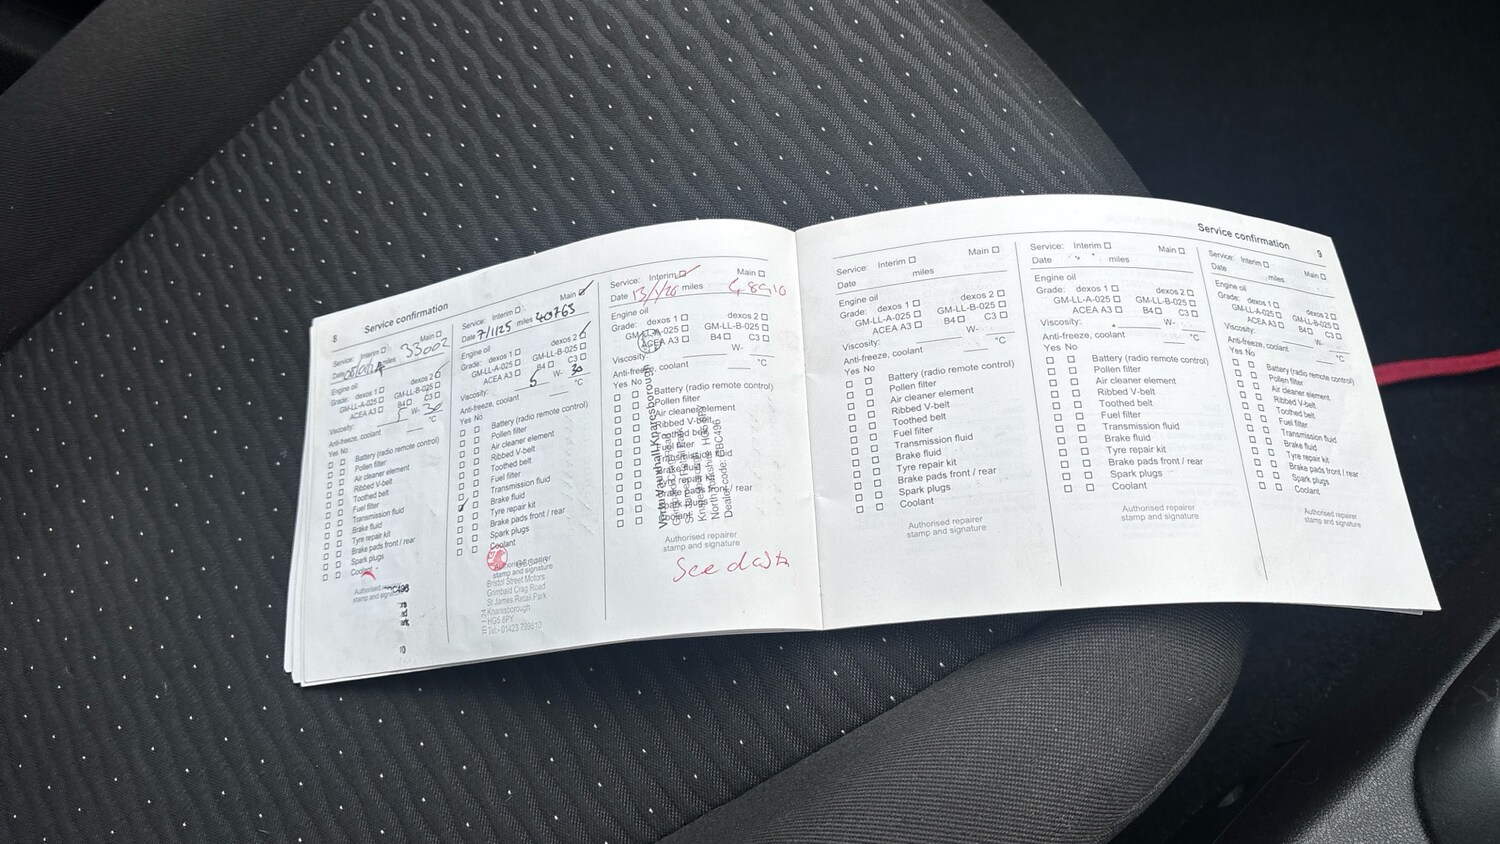 8
Service confirmation
Service: Interim ☐ Main ☐
miles 33002
Engine oil
Grade: dexos 1 ☐ dexos 2 ☐
GM-LL-A-025 ☐ GM-LL-B-025 ☐
ACEA A3 ☐ B4 ☐ C3 ☐
Viscosity: 5 W- 30
Anti-freeze, coolant °C
Yes No
Battery (radio remote control)
Pollen filter
Air cleaner element
Ribbed V-belt
Toothed belt
Fuel filter
Transmission fluid
Brake fluid
Tyre repair kit
Brake pads front / rear
Spark plugs
Coolant
Authorised
stamp and
C496
Service: Interim ☐ Main ☑
Date 7/1125 miles 40765
Engine oil
Grade: dexos 1 ☐ dexos 2 ☑
GM-LL-A-025 ☐ GM-LL-B-025 ☐
ACEA A3 ☐ B4 ☐ C3 ☐
Viscosity: 5 W- 30
Anti-freeze, coolant °C
Yes No
Battery (radio remote control)
Pollen filter
Air cleaner element
Ribbed V-belt
Toothed belt
Fuel filter
Transmission fluid
Brake fluid
Tyre repair kit
Brake pads front / rear
Spark plugs
Coolant
stamp and signature
Bristol Street Motors
Grimbald Crag Road
St James Retail Park
Knaresborough
HG5 8PY
Tel:- 01423 799810
Service: Interim ☑ Main ☐
Date 13/1/26 miles 48910
Engine oil
Grade: dexos 1 ☐ dexos 2 ☐
GM-LL-A-025 ☐ GM-LL-B-025 ☐
ACEA A3 ☐ B4 ☐ C3 ☐
Viscosity: W-
Anti-freeze, coolant °C
Yes No
Battery (radio remote control)
Pollen filter
Air cleaner element
Ribbed V-belt
Toothed belt
Fuel filter
Transmission fluid
Brake fluid
Tyre repair kit
Brake pads front / rear
Spark plugs
Coolant
Vertu Vauxhall Knaresborough
Dealer code:
Authorised repairer
stamp and signature
See data
Service confirmation
9
Service: Interim ☐ Main ☐
Date miles
Engine oil
Grade: dexos 1 ☐ dexos 2 ☐
GM-LL-A-025 ☐ GM-LL-B-025 ☐
ACEA A3 ☐ B4 ☐ C3 ☐
Viscosity: W-
Anti-freeze, coolant °C
Yes No
Battery (radio remote control)
Pollen filter
Air cleaner element
Ribbed V-belt
Toothed belt
Fuel filter
Transmission fluid
Brake fluid
Tyre repair kit
Brake pads front / rear
Spark plugs
Coolant
Authorised repairer
stamp and signature
Service: Interim ☐ Main ☐
Date miles
Engine oil
Grade: dexos 1 ☐ dexos 2 ☐
GM-LL-A-025 ☐ GM-LL-B-025 ☐
ACEA A3 ☐ B4 ☐ C3 ☐
Viscosity: W-
Anti-freeze, coolant °C
Yes No
Battery (radio remote control)
Pollen filter
Air cleaner element
Ribbed V-belt
Toothed belt
Fuel filter
Transmission fluid
Brake fluid
Tyre repair kit
Brake pads front / rear
Spark plugs
Coolant
Authorised repairer
stamp and signature
Service: Interim ☐ Main ☐
Date miles
Engine oil
Grade: dexos 1 ☐ dexos 2 ☐
GM-LL-A-025 ☐ GM-LL-B-025 ☐
ACEA A3 ☐ B4 ☐ C3 ☐
Viscosity: W-
Anti-freeze, coolant °C
Yes No
Battery (radio remote control)
Pollen filter
Air cleaner element
Ribbed V-belt
Toothed belt
Fuel filter
Transmission fluid
Brake fluid
Tyre repair kit
Brake pads front / rear
Spark plugs
Coolant
Authorised repairer
stamp and signature